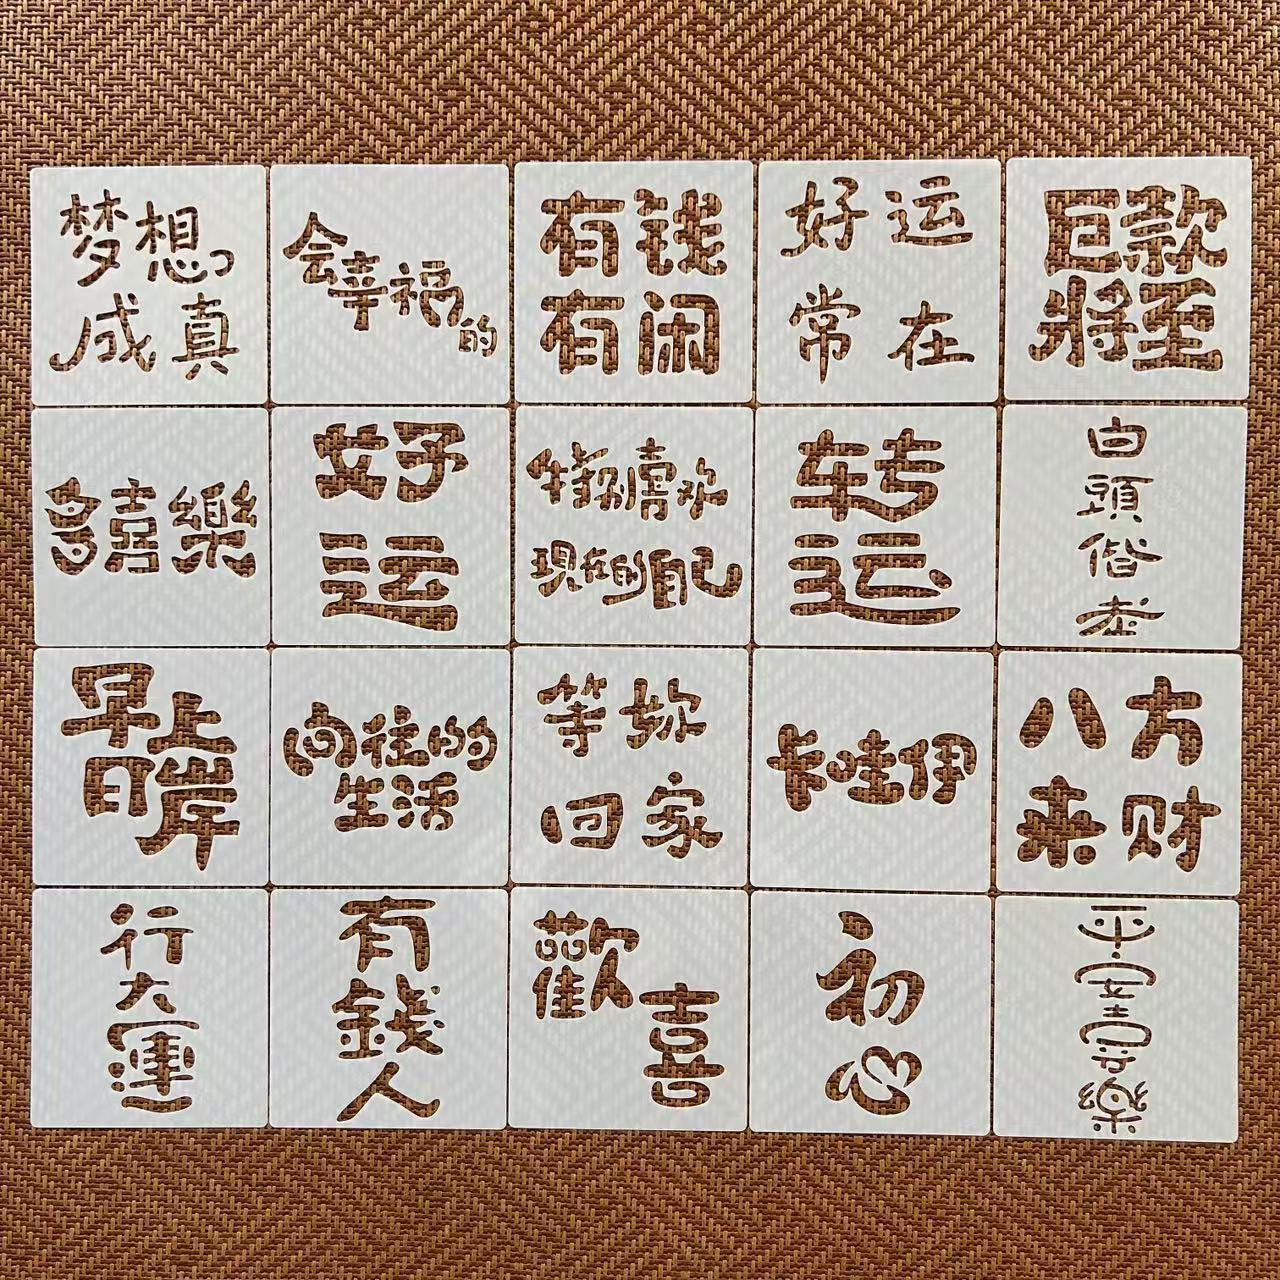 梦想
成真
会幸福的
有钱
有闲
好运
常在
巨款
將至
多喜樂
好
运
特别喜欢
現在的自己
转
运
白
頭
偕
老
早上
日岸
向往的
生活
等你
回家
卡哇伊
八方
来财
行
大
運
有
錢
人
歡
喜
初
心
平
安
喜
樂